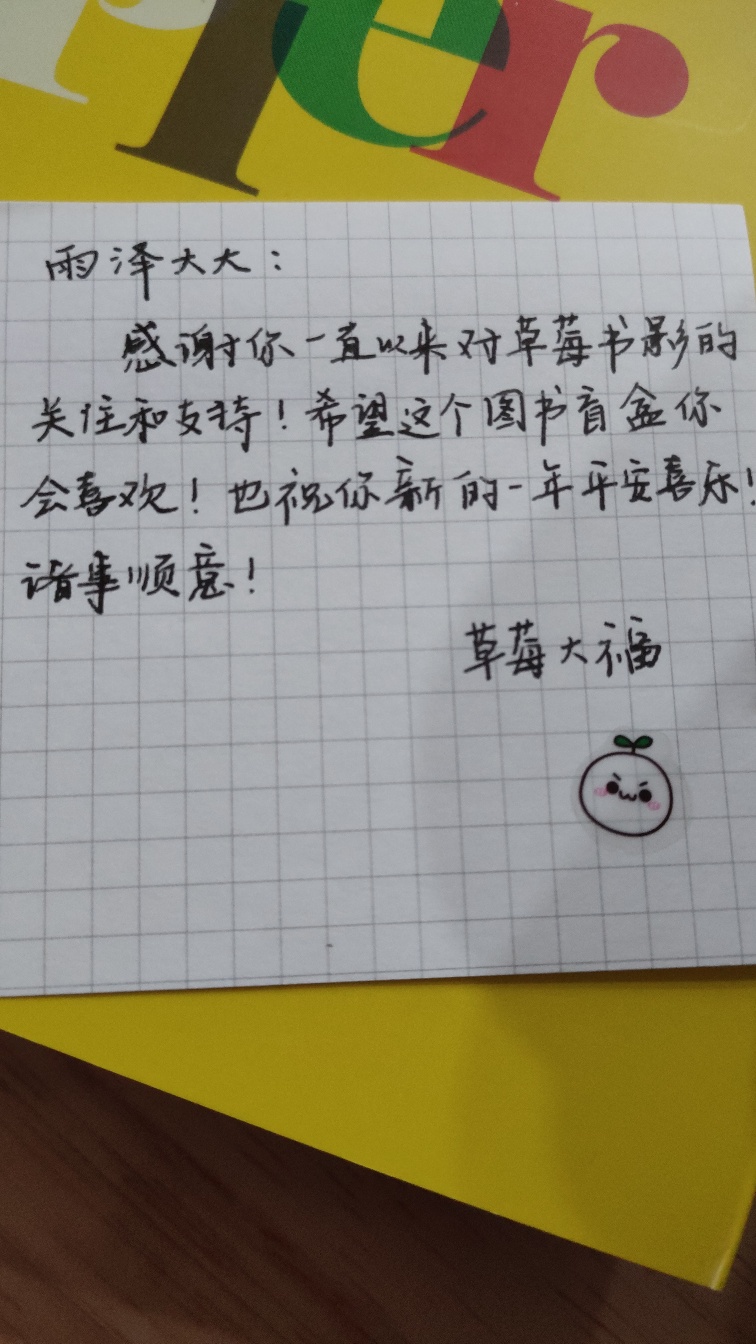 rrer
雨泽大大：
感谢你一直以来对草莓书影的
关注和支持！希望这个图书盲盒你
会喜欢！也祝你新的一年平安喜乐！
诸事顺意！
草莓大福